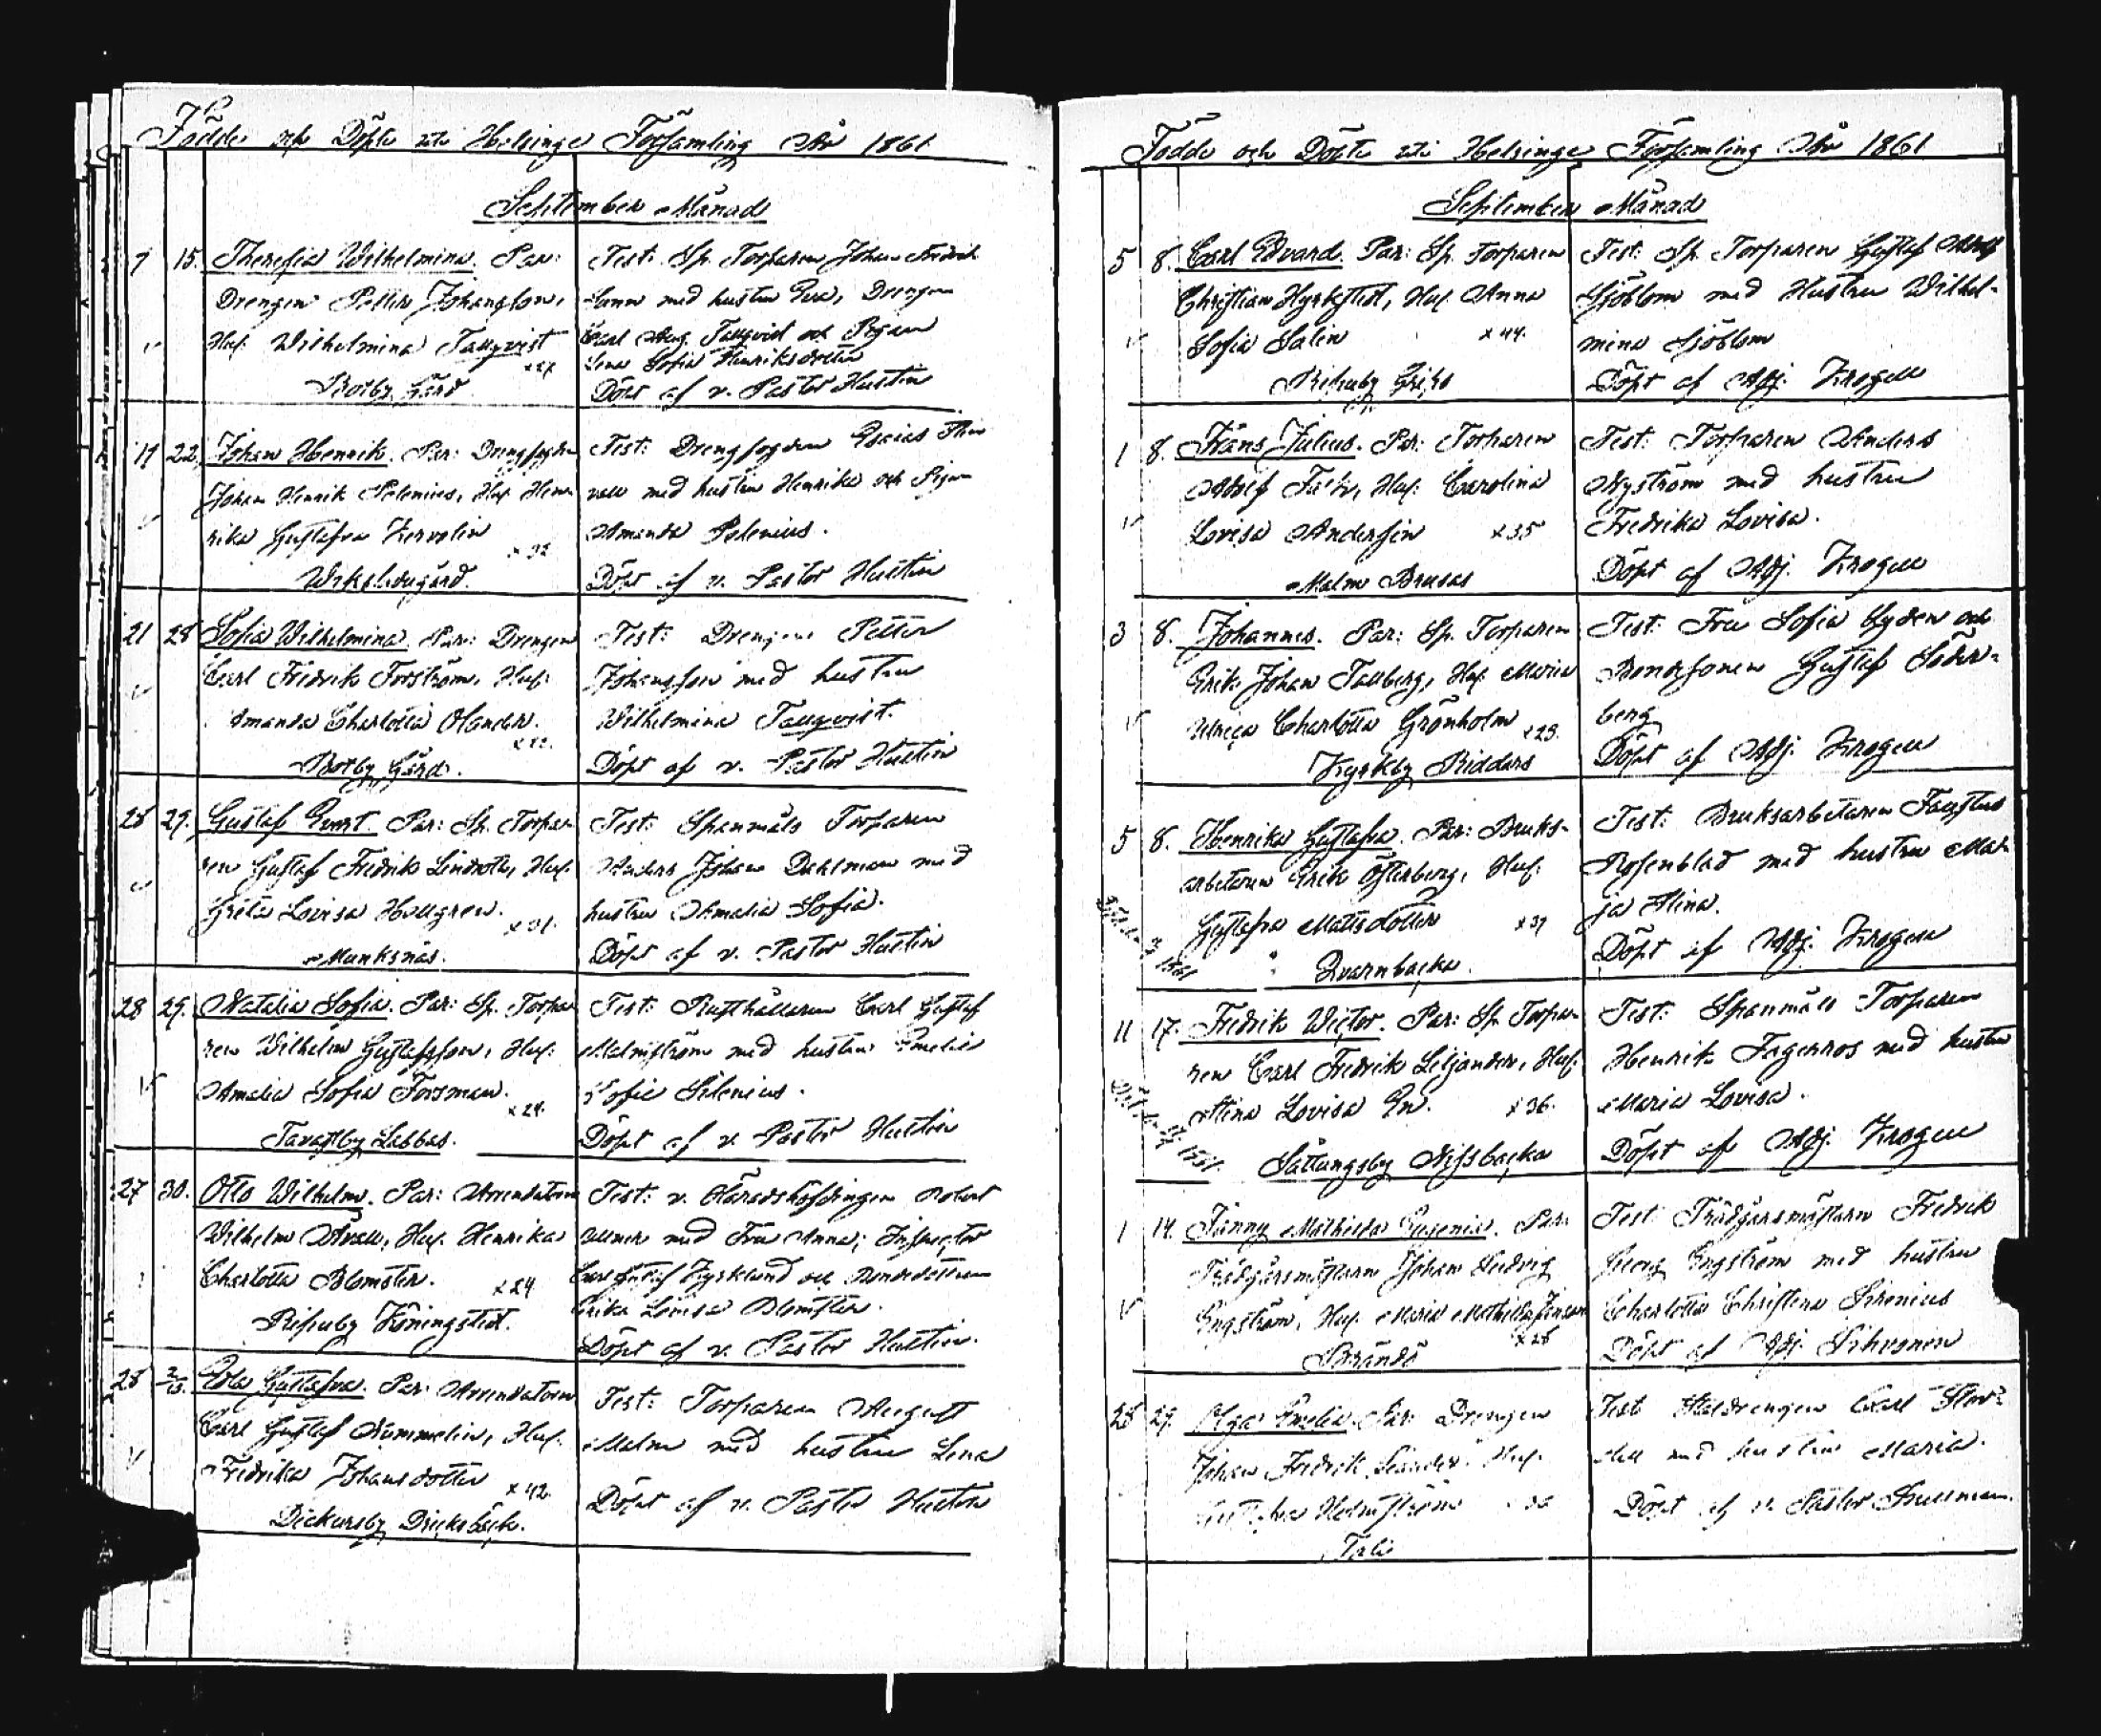 Födde och Döpte uti Helsinge Församling År 1861
September Månad
7 15. Theresia Wilhelmina. Par:
Drengen Petter Johansson,
Hus. Wilhelmina Tallqvist
x27
Botby Gård
Test: Sp. Torparen Johan Fredrik
med hustru Eva, Drengen
Carl Aug. Tallqvist och Pigan
Lena Sofia Henriksdotter
Döpt af v. Pastor Hustin
11 22. Johan Henrik. Par: Drengfogden
Johan Henrik Selenius, Hus. Hen-
rika Gustafva
x 32
gård.
Test: Drengfogden Esaias
med hustru Henrika och Pigan
Amanda Selenius.
Döpt af v. Pastor Hustin
21 28 Sofia Wilhelmina. Par: Drengen
Carl Fredrik Forström, Hus:
Amanda Charlotta Olander.
Botby Gård.
Test: Drengen Petter
Johansson med hustru
Wilhelmina Tallqvist.
Döpt af v. Pastor Hustin
28 29. Gustaf Evert. Par: Sp. Torpa-
ren Gustaf Fredrik Lindroth, Hus.
Greta Lovisa Hallgren.
x 31.
Munksnäs.
Test: Spanmåls Torparen
Anders Johan Dahlman med
hustru Amalia Sofia.
Döpt af v. Pastor Hustin
28 29. Natalia Sofia. Par: Sp. Torpa-
ren Wilhelm Gustafsson, Hus:
Amalia Sofia Forsman.
x 24.
Tavastby Labbas.
Test: Rusthållaren Carl Gustaf
Malmström med hustru Emelie
Sofie Silenius.
Döpt af v. Pastor Hustin
27 30. Otto Wilhelm. Par: Arrendatorn
Wilhelm Hus. Henrika
Charlotta Blomster.
x 24
Ripuby Köningstedt.
Test: v. Häradshöfdingen Robert
med Fru Anna; Inspector
Carl Gustaf Kyrklund och Bondedottren
Erika Lovisa Blomster.
Döpt af v. Pastor Hustin.
28 2/10. Eda Gustafva. Par: Arrendatorn
Carl Gustaf Nummelin, Hus.
Fredrika Johansdotter
x 42
Dickursby Dricksbäck.
Test: Torparen August
Malm med hustru Lena
Döpt af v. Pastor Hustin
Födde och Döpte uti Helsinge Församling År 1861
September Månad
5 8. Carl Edvard. Par: Sp. Torparen
Christian Hyrkstedt, Hus. Anna
Sofia Salin
x 44.
Ripuby Grips
Test: Sp. Torparen Gustaf Adolf
Sjöblom med Hustru Wilhel-
mina Sjöblom
Döpt af Adj. Krogell
1 8. Frans Julius. Par: Torparen
Adolf Hus: Carolina
Lovisa Andersin
x 35
Malm Brusas
Test: Torparen Anders
Nyström med hustru
Fredrika Lovisa.
Döpt af Adj. Krogell
3 8. Johannes. Par: Sp. Torparen
Erik Johan Tallberg, Hus. Maria
Ulrica Charlotta Grönholm
x 29.
Kyrkby Ridders
Test: Fru Sofia Nyden och
Bondesonen Gustaf Söder-
berg
Döpt af Adj. Krogell
5 8. Henrika Gustafva. Par: Bruks-
arbetaren Erik Österberg, Hus.
Gustafva Mattsdotter
x 37
1861
Qvarnbacka.
Test: Bruksarbetaren Faustus
Rosenblad med hustru Mat-
ja Stina.
Döpt af Adj. Krogell
11 17. Fredrik Wictor. Par: Sp. Torpa-
ren Carl Fredrik Liljander, Hus:
Stina Lovisa En.
x 36.
Såttungsby Nissbacka
Test: Spanmåls Torparen
Henrik Fagerros med hustru
Maria Lovisa.
Döpt af Adj. Krogell
1 14. Fanny Mathilda Eugenia. Par:
Trädgårsmästarn Johan Ludvig
Engström, Hus. Maria Mathilda Jansson
x 26
Brändö
Test: Trädgårsmästarn Fredrik
Georg Engström med hustru
Charlotta Christina Sirenius
Döpt af Adj. Sihvonen
28 29. Olga Emelia. Par: Drengen
Johan Fredrik Leander. Hus.
Holmström
Tali
Test: Staldrengen Carl
med hustru Maria.
Döpt af v. Pastor